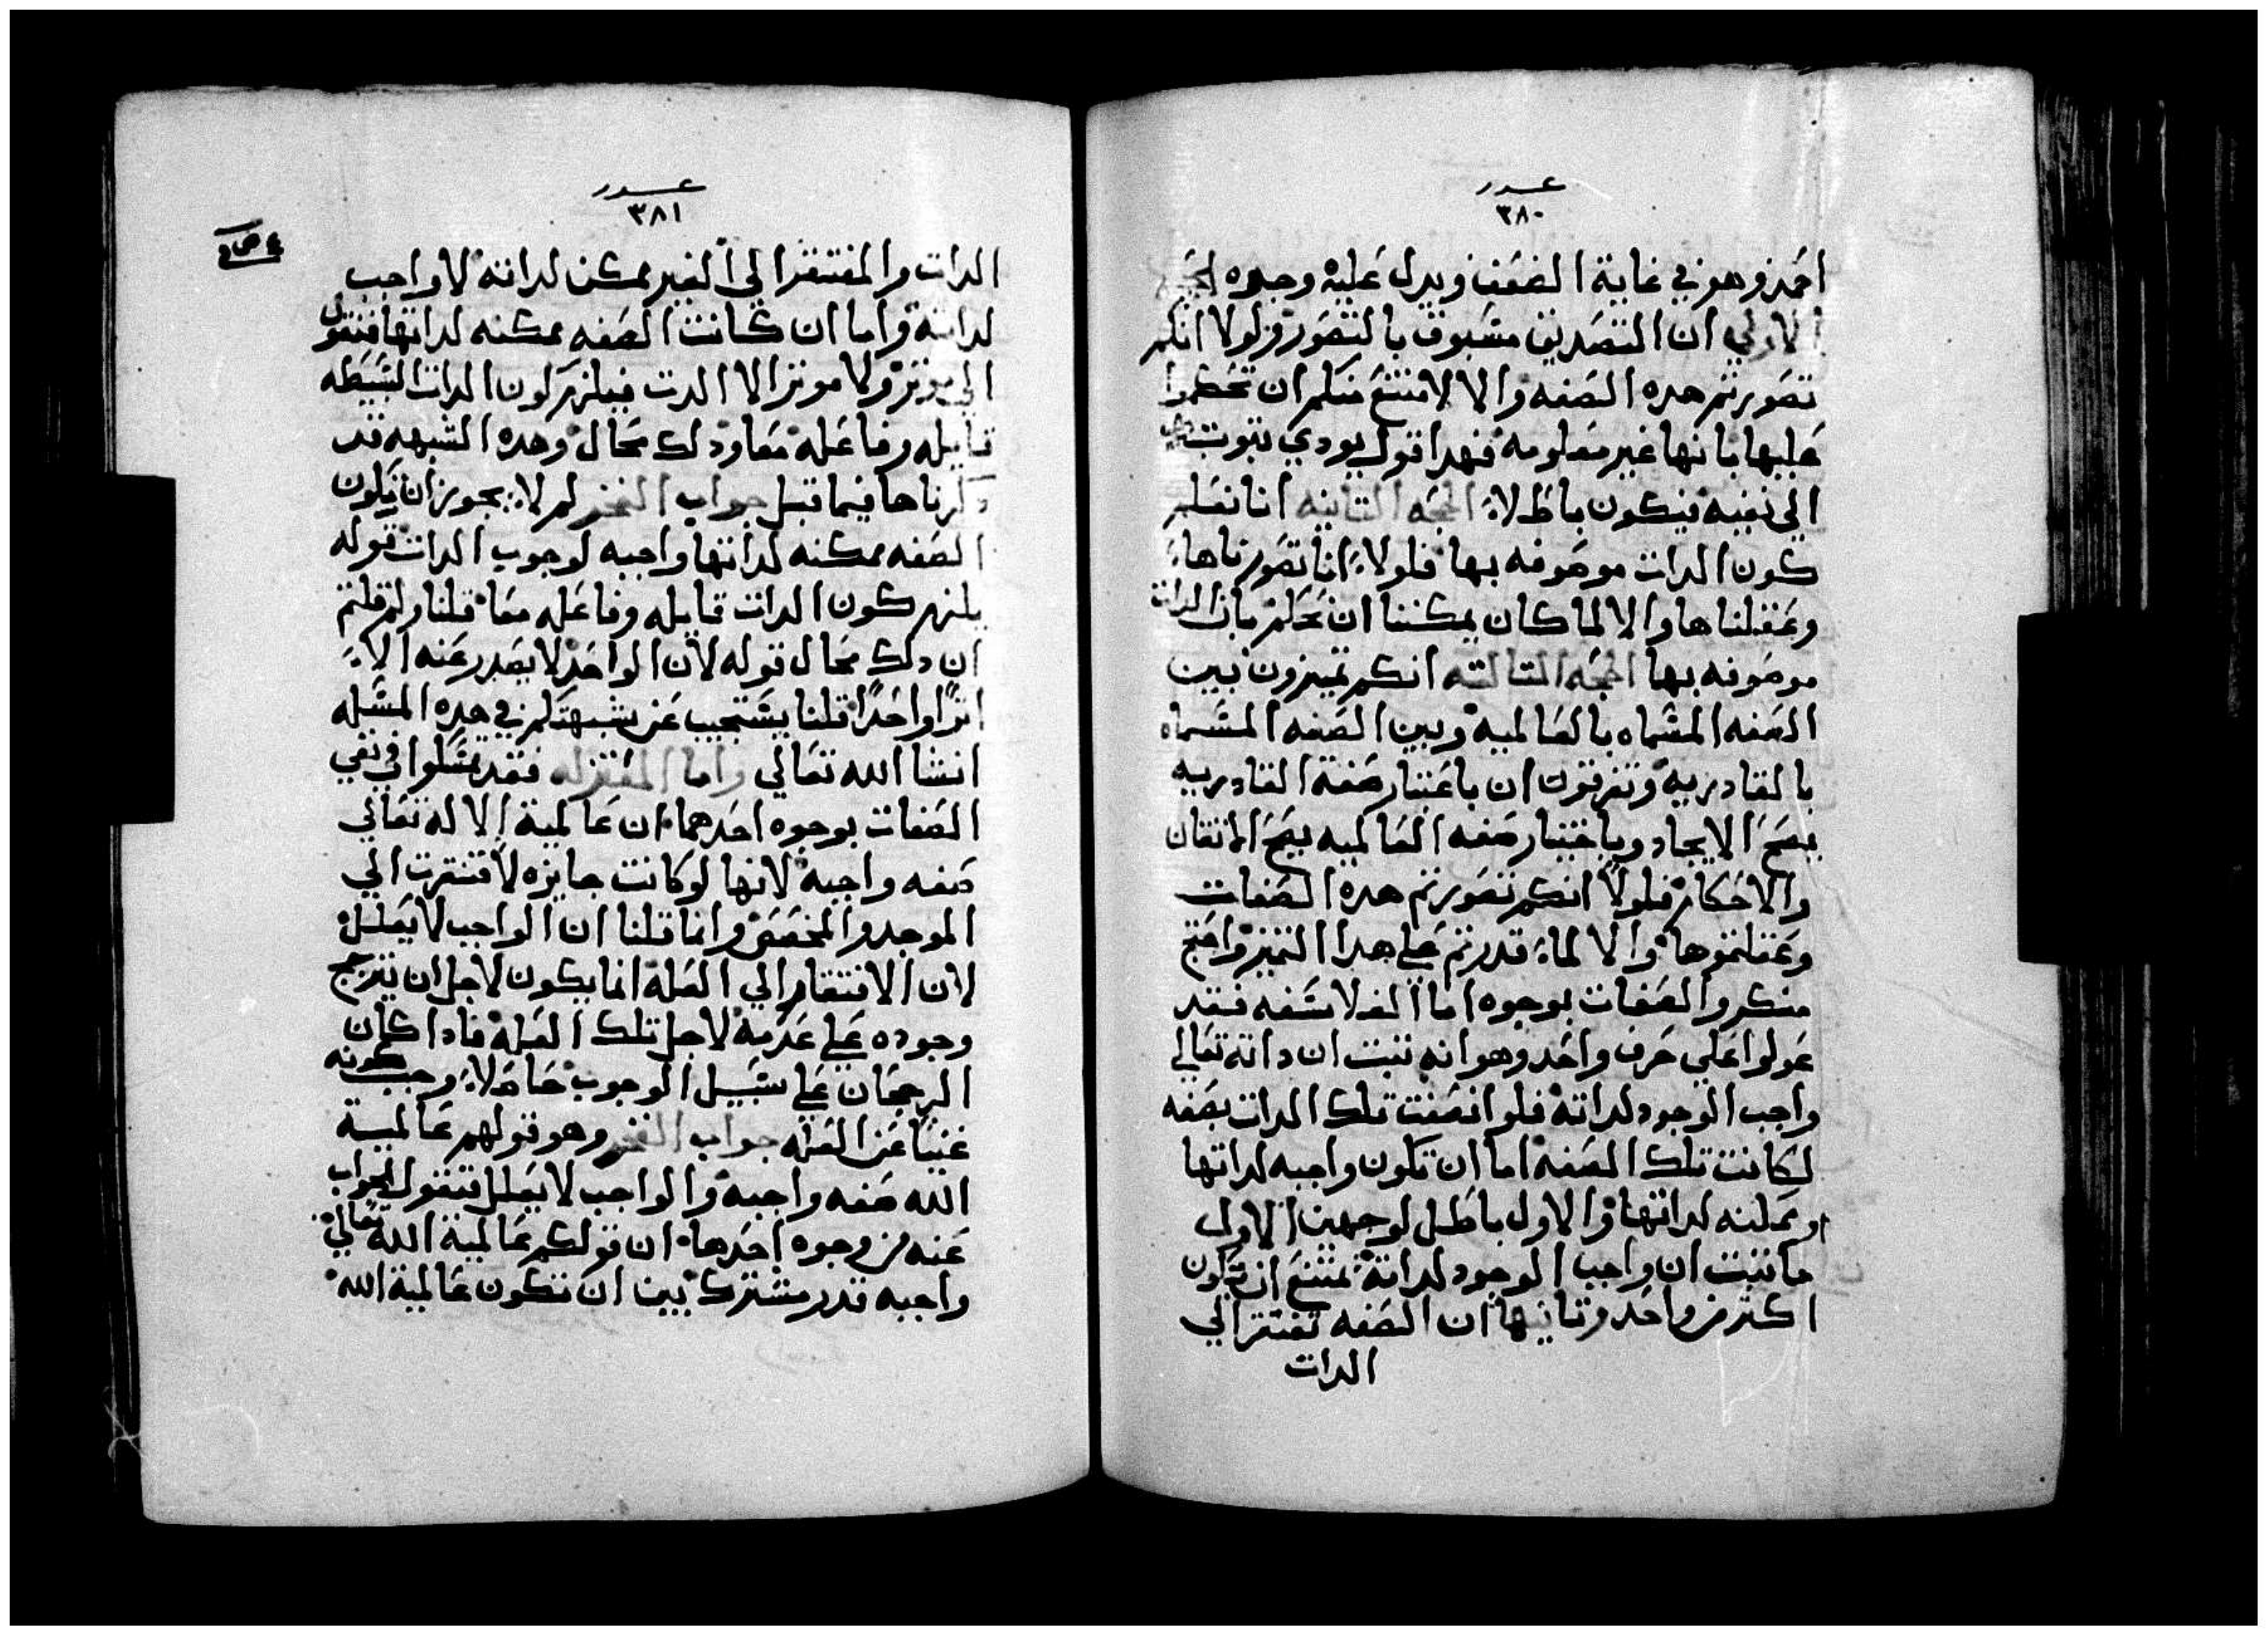 عدد
٣٨٠
احمد وهو في غاية الضعف ويدل عليه وجوه الحجه
الاولي ان التصديق مسبوق بالتصور فلولا انكم
تصورتم هده الصفه والا لامتنع منكم ان تحكموا
عليها بانها غير معلومه فهدا قول يودي ثبوته
الي نفيه فيكون باطلا الحجه التانيه انا نعلم
كون الدات موصوفه بها فلولا انا تصورناها
وعقلناها والا لما كان يمكننا ان نحكم بان الدات
موصوفه بها الحجه التالته انكم تميزون بين
الصفه المسماه بالعالمية وبين الصفه المسماه
بالقادرية وتفرقون ان باعتبار صفة القادريه
يصح الايجاد وباعتبار صفه العالميه يصح الاتقان
والاحكام فلولا انكم تصورتم هده الصفات
وعقلتموها والا لما قدرتم علي هدا التميز واحتج
منكروا الصفات بوجوه اما الفلاسفه فقد
عولوا علي حرف واحد وهو انه تبت ان داته تعالي
واجب الوجود لداته فلو اتصفت تلك الدات بصفه
لكانت تلك الصفه اما ان تكون واجبه لداتها
او ممكنه لداتها والاول باطل لوجهين الاول
ما تبت ان واجب الوجود لداته يمتنع ان يكون
اكتر من واحد وتانيها ان الصفه تفتقر الي
الدات
عدد
٣٨١
الدات والمفتقر الي الغير ممكن لداته لا واجب
لداته واما ان كانت الصفه ممكنه لداتها فتفتقر
الي موتر ولا موتر الا الدت فيلزم كون الدات البسيطه
قابله وفاعله معا ودلك محال وهده الشبهه قد
دكرناها فيما قبل جواب الفخر لم لا يجوز ان تكون
الصفه ممكنه لداتها واجبه لوجوب الدات قوله
يلزم كون الدات قابله وفاعله معا قلنا ولم قلتم
ان دلك محال قوله لان الواحد لا يصدر عنه الا
اترا واحدا قلنا يستجيب عن شبهتكم في هده المسله
انشا الله تعالي واما المعتزله فقد تمسكوا في نفي
الصفات بوجوه احدهما ان عالمية الاله تعالي
صفه واجبه لانها لو كانت جايزه لافتقرت الي
الموجد والمخصص وانما قلنا ان الواجب لا يعلل
لان الافتقار الي العلة انما يكون لاجل ان يترجح
وجوده علي عدمه لاجل تلك العلة فادا كان
الرجحان علي سبيل الوجوب حاصلا وجب كونه
غنيا عن العله جواب الفخر وهو قولهم عالمية
الله صفه واجبه والواجب لا يعلل فنقول الجواب
عنه من وجوه احدها ان قولكم عالمية الله تعالي
واجبه قدر مشترك بين ان تكون عالمية الله